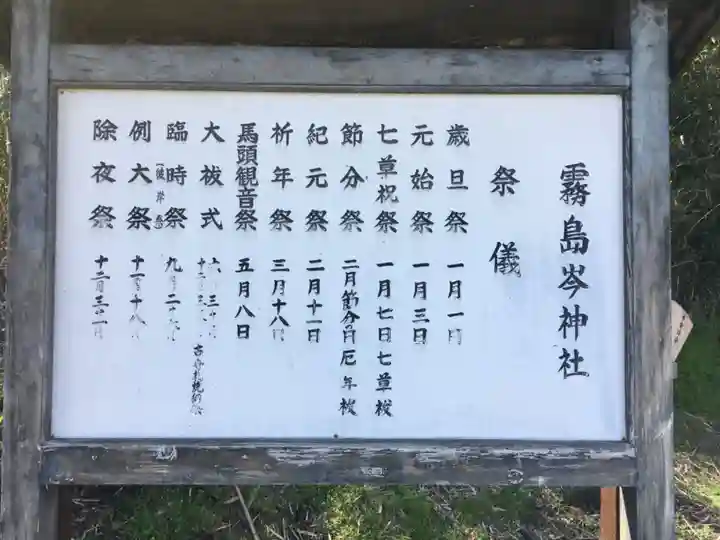 霧島岑神社
祭儀
歳旦祭 一月一日
元始祭 一月三日
七草祝祭 一月七日七草祓
節分祭 二月節分の日厄年祓
紀元祭 二月十一日
祈年祭 三月十八日
馬頭観音祭 五月八日
大祓式 六月三十
臨時祭（彼岸祭） 九月二十
例大祭 十一月十八
除夜祭 十二月三十一